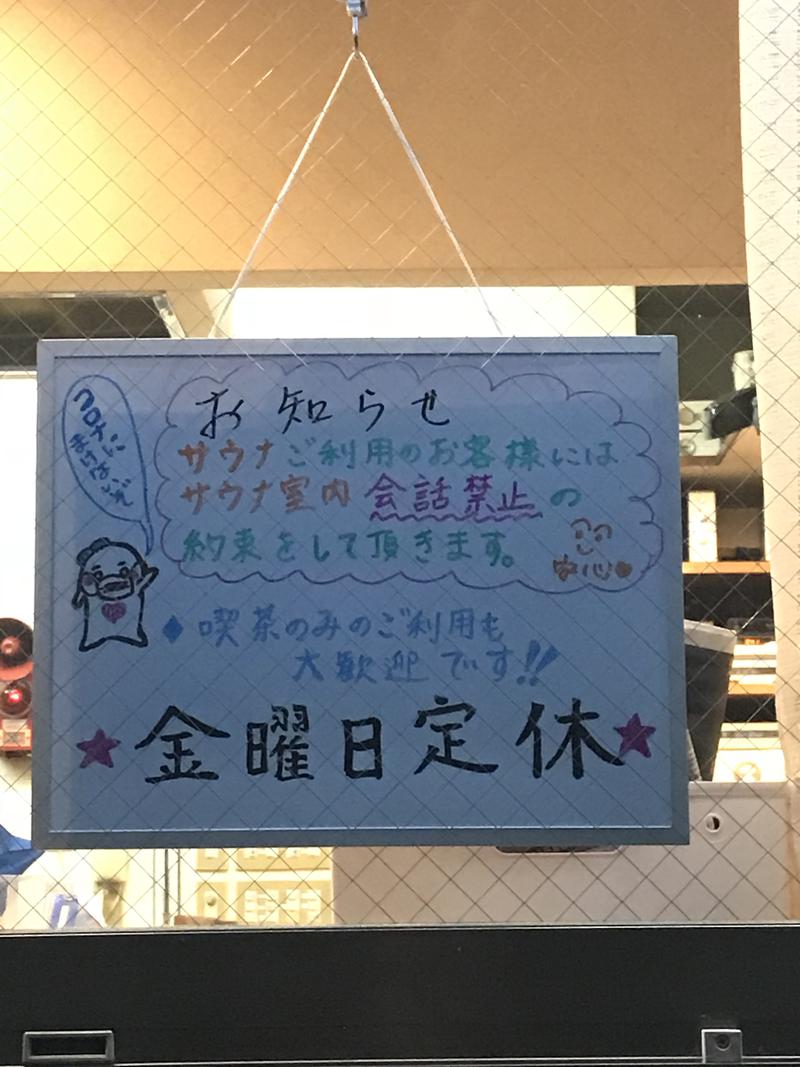 コロナに
まけないぞ
お知らせ
サウナご利用のお客様には
サウナ室内会話禁止の
約束をして頂きます。
安心
◆喫茶のみのご利用も
大歓迎です!!
★金曜日定休★